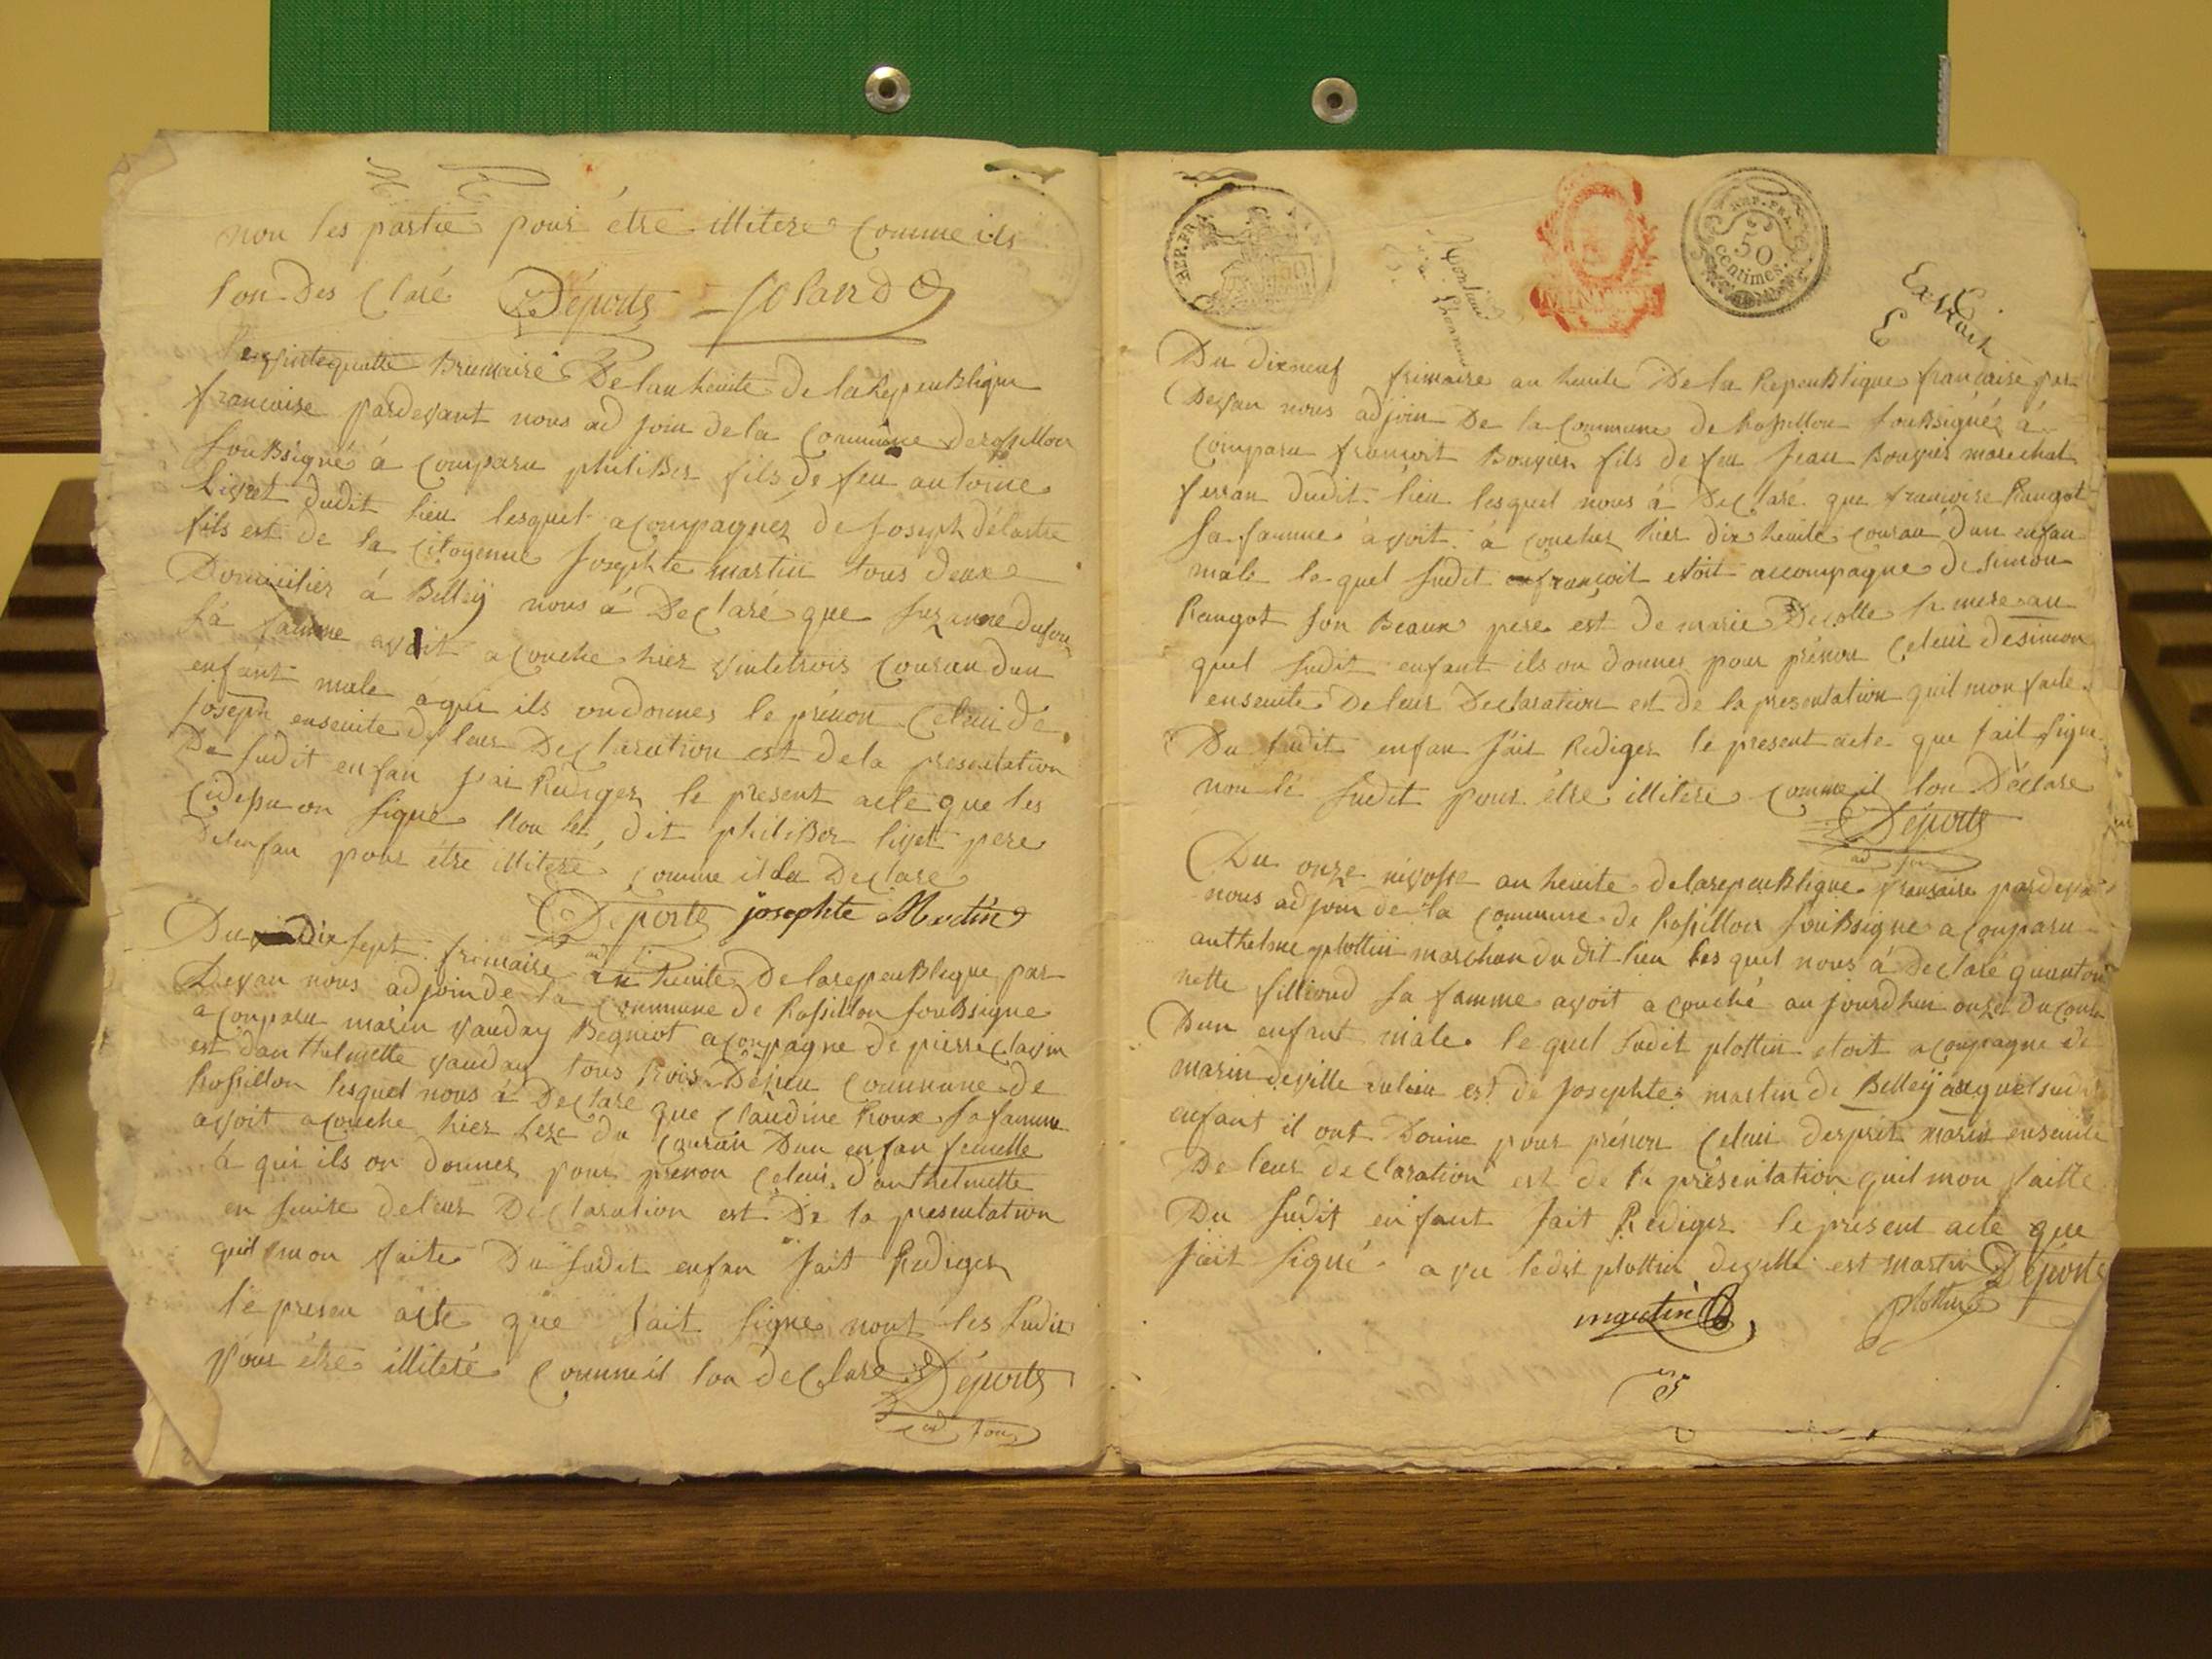 non les partie pour étre illitere comme ils
lon des claré Déports Solard
vintequatre Brumaire De lan heuite de la RepeuBlique
francaise pardevant nous ad join de la commune derossillon
souBsigné à comparu philiBer fils de feu antoine
Livet dudit lieu lesquel acompagnez de Joseph délastre
fils est de la citoyenne Josephte martin tous deux
Domicilier á Belleÿ nous á Declaré que suzanne
sá famme avoit acouche hier vintetrois couran dun
enfant male aqui ils ondonner le prénon celeui dé
Joseph enseuite de leur Declaration est dela presentation
Du sudit enfan jai Rediger le present acte que les
cidessu on signe non le dit philiBer livet pere
delenfan pour étre illiteré comme il la Declare
Déports josephte Martin
ad j.
Du Dix sept frimaire an heuite De larepeuBleque par
Devan nous adjoin de la commune de Rossillon souBsigne
a conparu marin vauday Begniot aconpagne de pierre clavin
est danthelmette vauday tous trois commune de
Rossillon lesquel nous à Declare que claudine Roux sa famme
avoit acouche hier seze du couran Dun enfan femelle
à qui ils on donner pour prénon celeui danthelmette
en seuite deleur Declaration est De la presentation
quil mon faite Du sudit enfan Jait Rediger
le presen acte que Jait signe nont les sudit
pour étre illiteré comme il lon declare Déports
ad join
REP. FRA.
MINUTE
REP. FRA.
50
centimes.
Extrait
E
Du dixneuf frimaire an heuite De la RepeuBlique francaise par
Devan nous adjoin De la commune de Rossillon souBsignéz á
comparu francoit Bouvier fils de feu Jean Bouvier marechal
ferran dudit lieu lesquel nous á Declaré que francoise Raugot
sa famme àvoit á coucher hier dix heuite couran dun enfan
male lequel sudit francoit etoit accompagne de simon
Raugot son Beaux pere est de marie Decolle sa mere au
quel sudit enfant ils on donner pour prénon celeui desimon
enseuite De leur Declaration est de la presentation quil mon faite
Du sudit enfan Jait Rediger le present acte que jait signe
non lé sudit pour étre illitere comme il lon Déclare
Déports
ad join
Du onze nivosse an heuite delarepeuBlique fransaire pardevan
nous adjoin de la commune de Rossillon souBsigne a conparu
anthelme plottin marchan du dit lieu les quel nous á Declaré quanton
nette fillioud sa famme avoit acouché au jourdhui onze du couran
Dun enfant male le quel sudit plottin etoit acompagne de
marin deville est de Josephte martin de Belleÿ auquel sudit
enfant il ont Donne pour prénon celui desprit marin enseuite
De leur declaration est de la présentation quil mon faitte
Du sudit enfant Jait Rediger le présent acte que
Jait signé avu ledit plottin deville est martin Déports
martin plottin